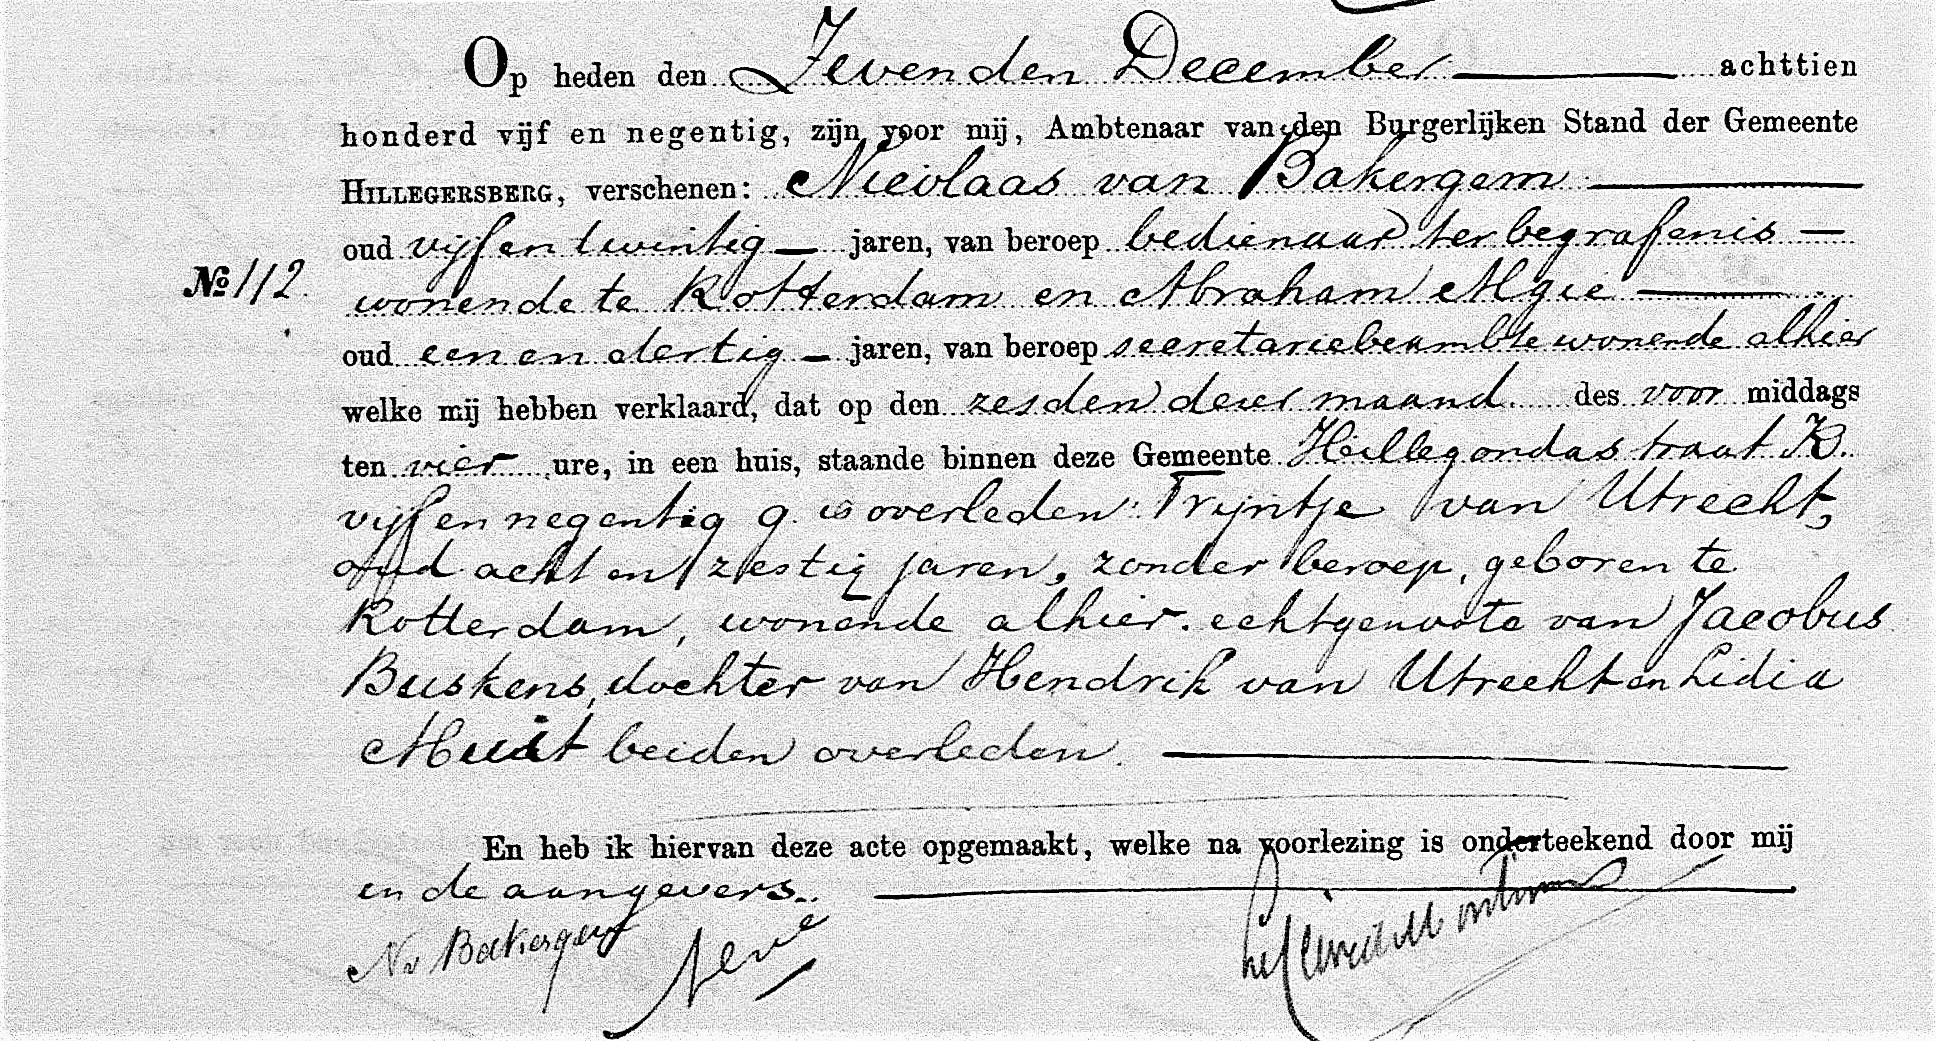 Op heden den Zevenden December achttien
honderd vijf en negentig, zijn voor mij, Ambtenaar van den Burgerlijken Stand der Gemeente
HILLEGERSBERG, verschenen: Nicolaas van Bakergem
oud vijf en twintig jaren, van beroep bedienaar ter begrafenis
No 112.
wonende te Rotterdam en Abraham Algie
oud een en dertig jaren, van beroep secretariebeambte wonende alhier
welke mij hebben verklaard, dat op den zesden dezer maand des voor middags
ten vier ure, in een huis, staande binnen deze Gemeente Hillegondastraat B.
vijf en negentig g. is overleden: Trijntje van Utrecht,
oud acht en zestig jaren, zonder beroep, geboren te
Rotterdam, wonende alhier. echtgenoote van Jacobus
Buskens, dochter van Hendrik van Utrecht en Lidia
Muit beiden overleden.
En heb ik hiervan deze acte opgemaakt, welke na voorlezing is onderteekend door mij
en de aangevers.
Nv Bakergem